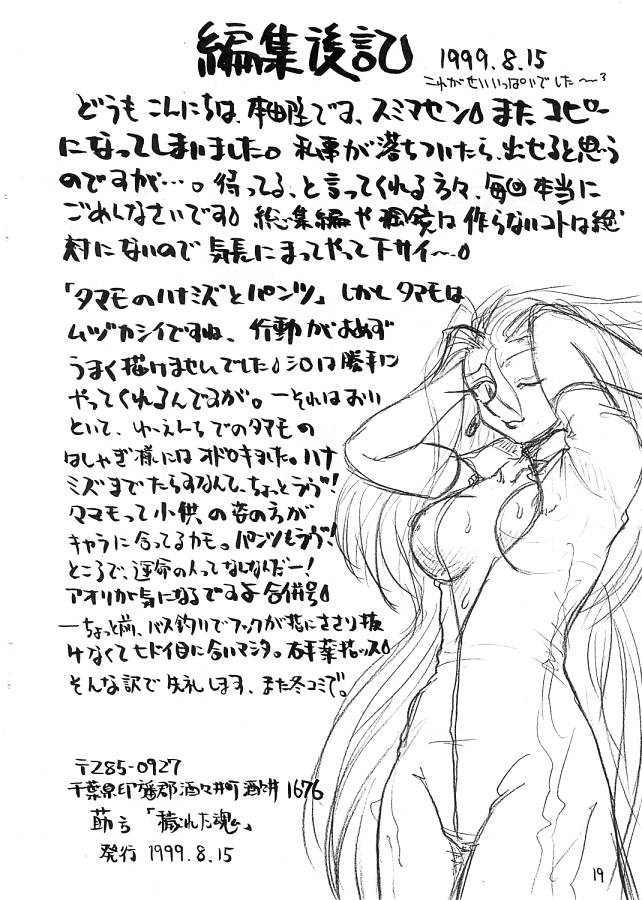 編集後記 1999.8.15
これがせいいっぱいでした〜
どうもこんにちは、本田です、スミマセン。またコピー
になってしまいました。私事が落ちついたら、出せると思う
のですが…。待ってる、と言ってくれる方々、毎回本当に
ごめんなさいです。総集編や は作らないコトは絶
対にないので気長にまってやって下サイ〜。
「タマモのハナミズとパンツ」しかしタマモは
ムヅカシイですね、行動がおめず
うまく描けませんでした。シロは勝手に
やってくれるんですが。ーそれはおい
といて、ゆーえんちでのタマモの
はしゃぎ様にはオドロキました。ハナ
ミズまでたらすなんて、ちょっとラヴ!
タマモって小供の姿の方が
キャラに合ってるカモ。パンツもラヴ!
ところで、運命の人ってなんなんだー!
アオリが気になるですよ合併号。
ーちょっと前、バス釣りでフックが指にささり抜
けなくて七ドイ目に合いマシタ。右手薬指ッス。
そんな訳で失礼します、また冬コミで。
〒285-0927
千葉県印旛郡酒々井町酒々井1676
「穢れた魂」
発行 1999.8.15
19